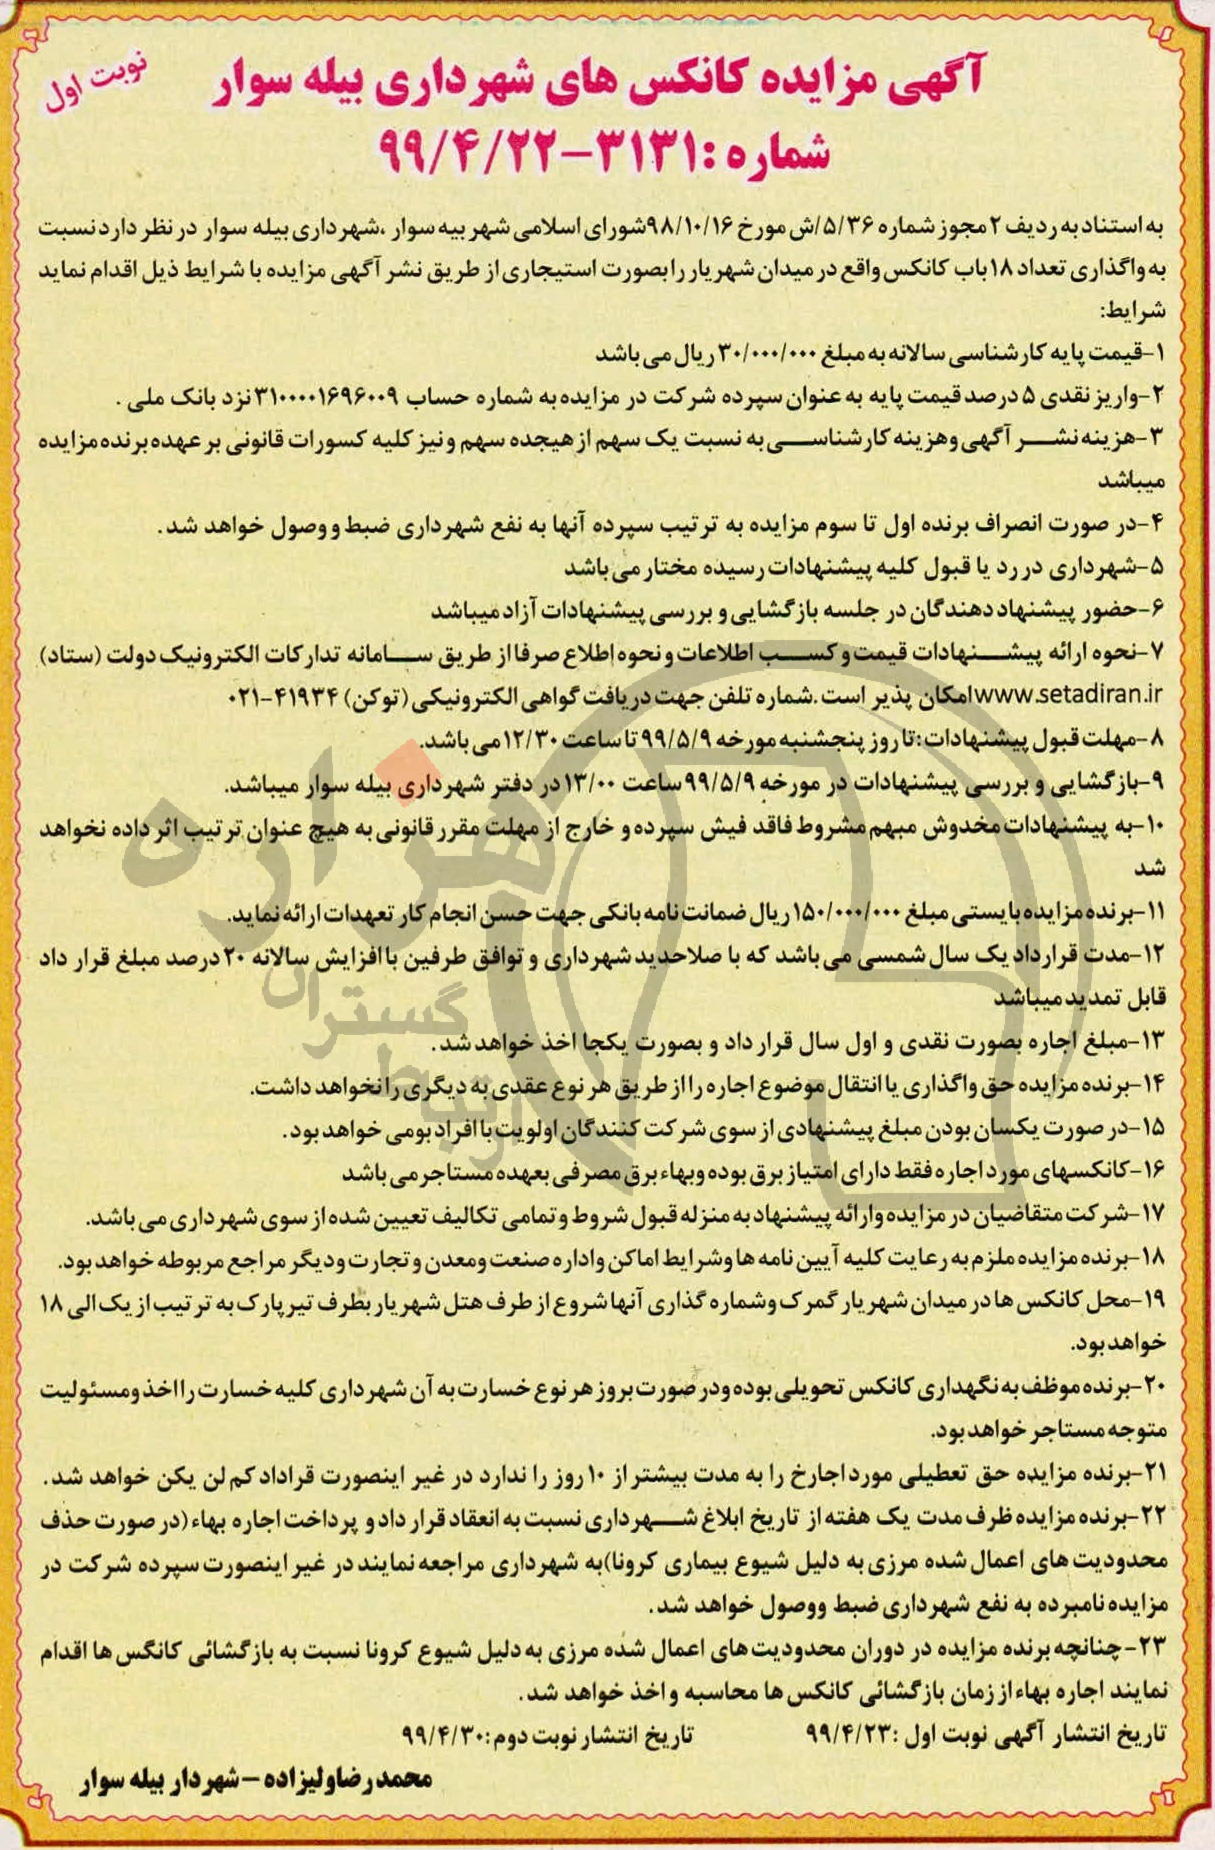 نوبت اول
آگهی مزایده کانکس های شهرداری بیله سوار
شماره :۳۱۳۱-۹۹/۴/۲۲
به استناد به ردیف ۲ مجوز شماره ۵/۳۶/ش مورخ ۹۸/۱۰/۱۶شورای اسلامی شهر بیه سوار ،شهرداری بیله سوار در نظر دارد نسبت
به واگذاری تعداد ۱۸ باب کانکس واقع در میدان شهریار را بصورت استیجاری از طریق نشر آگهی مزایده با شرایط ذیل اقدام نماید
شرایط:
۱-قیمت پایه کارشناسی سالانه به مبلغ ۳۰/۰۰۰/۰۰۰ ریال می باشد
۲-واریز نقدی ۵ درصد قیمت پایه به عنوان سپرده شرکت در مزایده به شماره حساب ۳۱۰۰۰۰۱۶۹۶۰۰۹ نزد بانک ملی .
۳-هزینه نشر آگهی وهزینه کارشناسی به نسبت یک سهم از هیجده سهم و نیز کلیه کسورات قانونی بر عهده برنده مزایده
میباشد
۴-در صورت انصراف برنده اول تا سوم مزایده به ترتیب سپرده آنها به نفع شهرداری ضبط و وصول خواهد شد.
۵-شهرداری در رد یا قبول کلیه پیشنهادات رسیده مختار می باشد
۶-حضور پیشنهاد دهندگان در جلسه بازگشایی و بررسی پیشنهادات آزاد میباشد
۷-نحوه ارائه پیشنهادات قیمت و کسب اطلاعات و نحوه اطلاع صرفا از طریق سامانه تدارکات الکترونیک دولت (ستاد)
www.setadiran.ir امکان پذیر است.شماره تلفن جهت دریافت گواهی الکترونیکی (توکن) ۴۱۹۳۴-۰۲۱
۸-مهلت قبول پیشنهادات :تا روز پنجشنبه مورخه ۹۹/۵/۹ تا ساعت ۱۲/۳۰ می باشد.
۹-بازگشایی و بررسی پیشنهادات در مورخه ۹۹/۵/۹ ساعت ۱۳/۰۰ در دفتر شهرداری بیله سوار میباشد.
۱۰-به پیشنهادات مخدوش مبهم مشروط فاقد فیش سپرده و خارج از مهلت مقرر قانونی به هیچ عنوان ترتیب اثر داده نخواهد
شد
۱۱-برنده مزایده بایستی مبلغ ۱۵۰/۰۰۰/۰۰۰ ریال ضمانت نامه بانکی جهت حسن انجام کار تعهدات ارائه نماید.
۱۲-مدت قرارداد یک سال شمسی می باشد که با صلاحدید شهرداری و توافق طرفین با افزایش سالانه ۲۰ درصد مبلغ قرار داد
قابل تمدید میباشد
۱۳-مبلغ اجاره بصورت نقدی و اول سال قرار داد و بصورت یکجا اخذ خواهد شد.
۱۴-برنده مزایده حق واگذاری یا انتقال موضوع اجاره را از طریق هر نوع عقدی به دیگری را نخواهد داشت.
۱۵-در صورت یکسان بودن مبلغ پیشنهادی از سوی شرکت کنندگان اولویت با افراد بومی خواهد بود.
۱۶-کانکسهای مورد اجاره فقط دارای امتیاز برق بوده وبهاء برق مصرفی بعهده مستاجر می باشد
۱۷-شرکت متقاضیان در مزایده وارائه پیشنهاد به منزله قبول شروط و تمامی تکالیف تعیین شده از سوی شهرداری می باشد.
۱۸-برنده مزایده ملزم به رعایت کلیه آیین نامه ها وشرایط اماکن واداره صنعت ومعدن و تجارت ودیگر مراجع مربوطه خواهد بود.
۱۹-محل کانکس ها در میدان شهریار گمرک وشماره گذاری آنها شروع از طرف هتل شهریار بطرف تیرپارک به ترتیب از یک الی ۱۸
خواهد بود.
۲۰-برنده موظف به نگهداری کانکس تحویلی بوده ودر صورت بروز هر نوع خسارت به آن شهرداری کلیه خسارت را اخذ ومسئولیت
متوجه مستاجر خواهد بود.
۲۱-برنده مزایده حق تعطیلی مورد اجارخ را به مدت بیشتر از ۱۰ روز را ندارد در غیر اینصورت قراداد کم لن یکن خواهد شد.
۲۲-برنده مزایده ظرف مدت یک هفته از تاریخ ابلاغ شهرداری نسبت به انعقاد قرار داد و پرداخت اجاره بهاء (در صورت حذف
محدودیت های اعمال شده مرزی به دلیل شیوع بیماری کرونا)به شهرداری مراجعه نمایند در غیر اینصورت سپرده شرکت در
مزایده نامبرده به نفع شهرداری ضبط ووصول خواهد شد.
۲۳-چنانچه برنده مزایده در دوران محدودیت های اعمال شده مرزی به دلیل شیوع کرونا نسبت به بازگشائی کانگس ها اقدام
نمایند اجاره بهاء از زمان بازگشائی کانکس ها محاسبه و اخذ خواهد شد.
تاریخ انتشار آگهی نوبت اول :۹۹/۴/۲۳ تاریخ انتشار نوبت دوم :۹۹/۴/۳۰
محمدرضاولیزاده -شهردار بیله سوار
هزاره
گستران